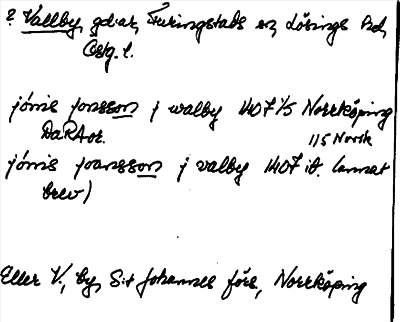 ? Vallby, gdar, Furingstads sn, Lösings hd,
Östg. l.
jönis jonsson j walby 1407 1/5 Norrköping
DaRAor. 1/5 Norrk
jönis joansson j valby 1407 ib. (annat
brev)
Eller V, by, S:t Johannes förs, Norrköping